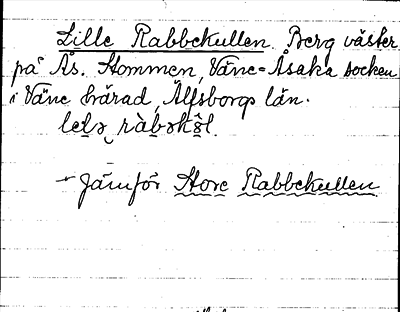 Lille Rabbekullen. Berg väster
på Ås. Stommen, Väne-Åsaka socken
i Väne härad, Älfsborgs län.
Jämför Store Rabbekullen